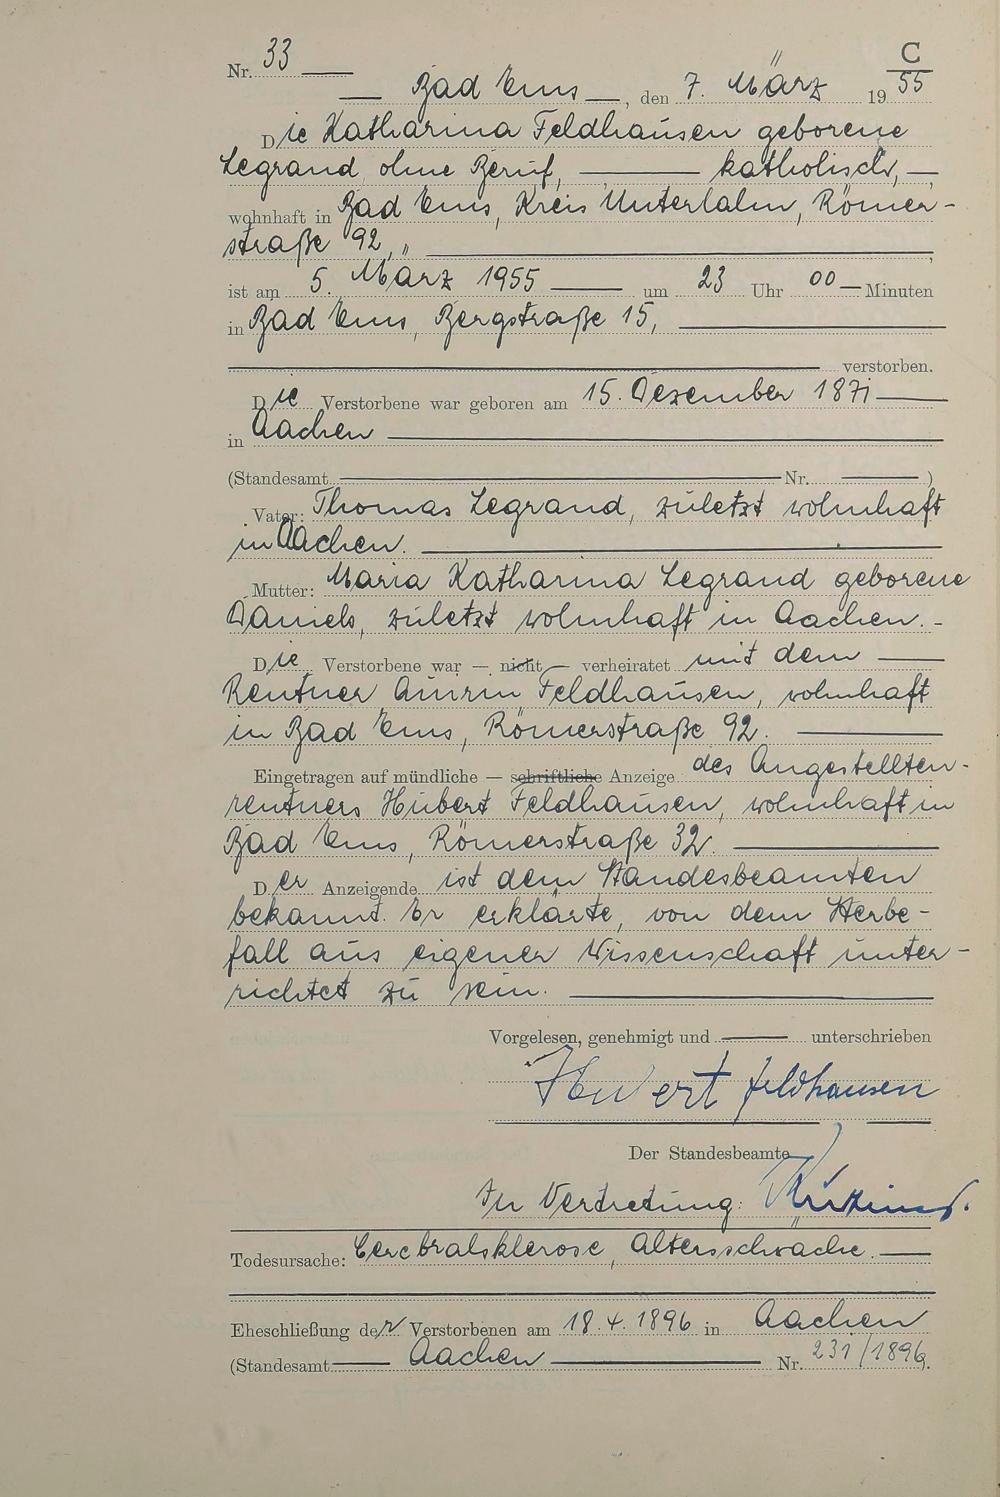 C
Nr. 33
Bad Ems, den 7. März 19 55
Die Katharina Feldhausen geborene
Legrand, ohne Beruf, katholisch,
wohnhaft in Bad Ems, Kreis Unterlahn, Römer-
straße 92,
ist am 5. März 1955 um 23 Uhr 00 Minuten
in Bad Ems, Bergstraße 15,
verstorben.
Die Verstorbene war geboren am 15. Dezember 1871
in Aachen
(Standesamt Nr. )
Vater: Thomas Legrand, zuletzt wohnhaft
in Aachen.
Mutter: Maria Katharina Legrand geborene
Daniels, zuletzt wohnhaft in Aachen.
Die Verstorbene war — nicht — verheiratet mit dem
Rentner Feldhausen, wohnhaft
in Bad Ems, Römerstraße 92.
Eingetragen auf mündliche — schriftliche Anzeige des Angestellten-
rentners Hubert Feldhausen, wohnhaft in
Bad Ems, Römerstraße 32.
Der Anzeigende ist dem Standesbeamten
bekannt. Er erklärte, von dem Sterbe-
fall aus eigener Wissenschaft unter-
richtet zu sein.
Vorgelesen, genehmigt und unterschrieben
Hubert Feldhausen
Der Standesbeamte
In Vertretung:
Todesursache: Cerebralsklerose, Altersschwäche.
Eheschließung der Verstorbenen am 18.4.1896 in Aachen
(Standesamt Aachen Nr. 231/1896.